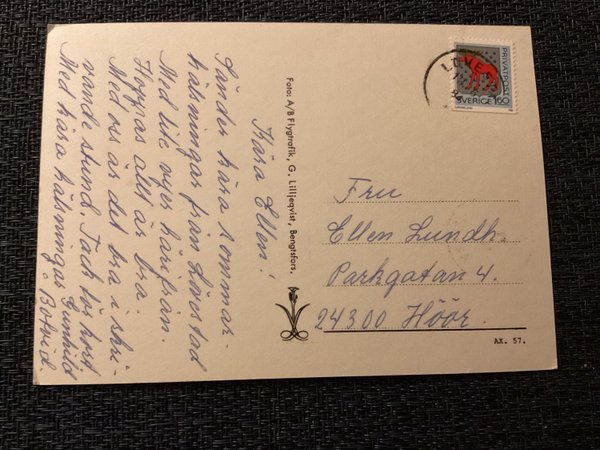 Kära Ellen!
Sänder kära sommar-
hälsningar från Lövestad
Med lite vyer härifrån.
Hoppas allt är bra
Med oss är det bra i skri-
vande stund. Tack för kort
Med kära hälsningar Gunhild
o Botvid.
Foto: A/B Flygtrafik, G. Lilljeqvist, Bengtsfors.
PRIVATPOST
SVERIGE 160
Fru
Ellen Lundh.
Parkgatan 4.
24300 Höör.
AX. 57.